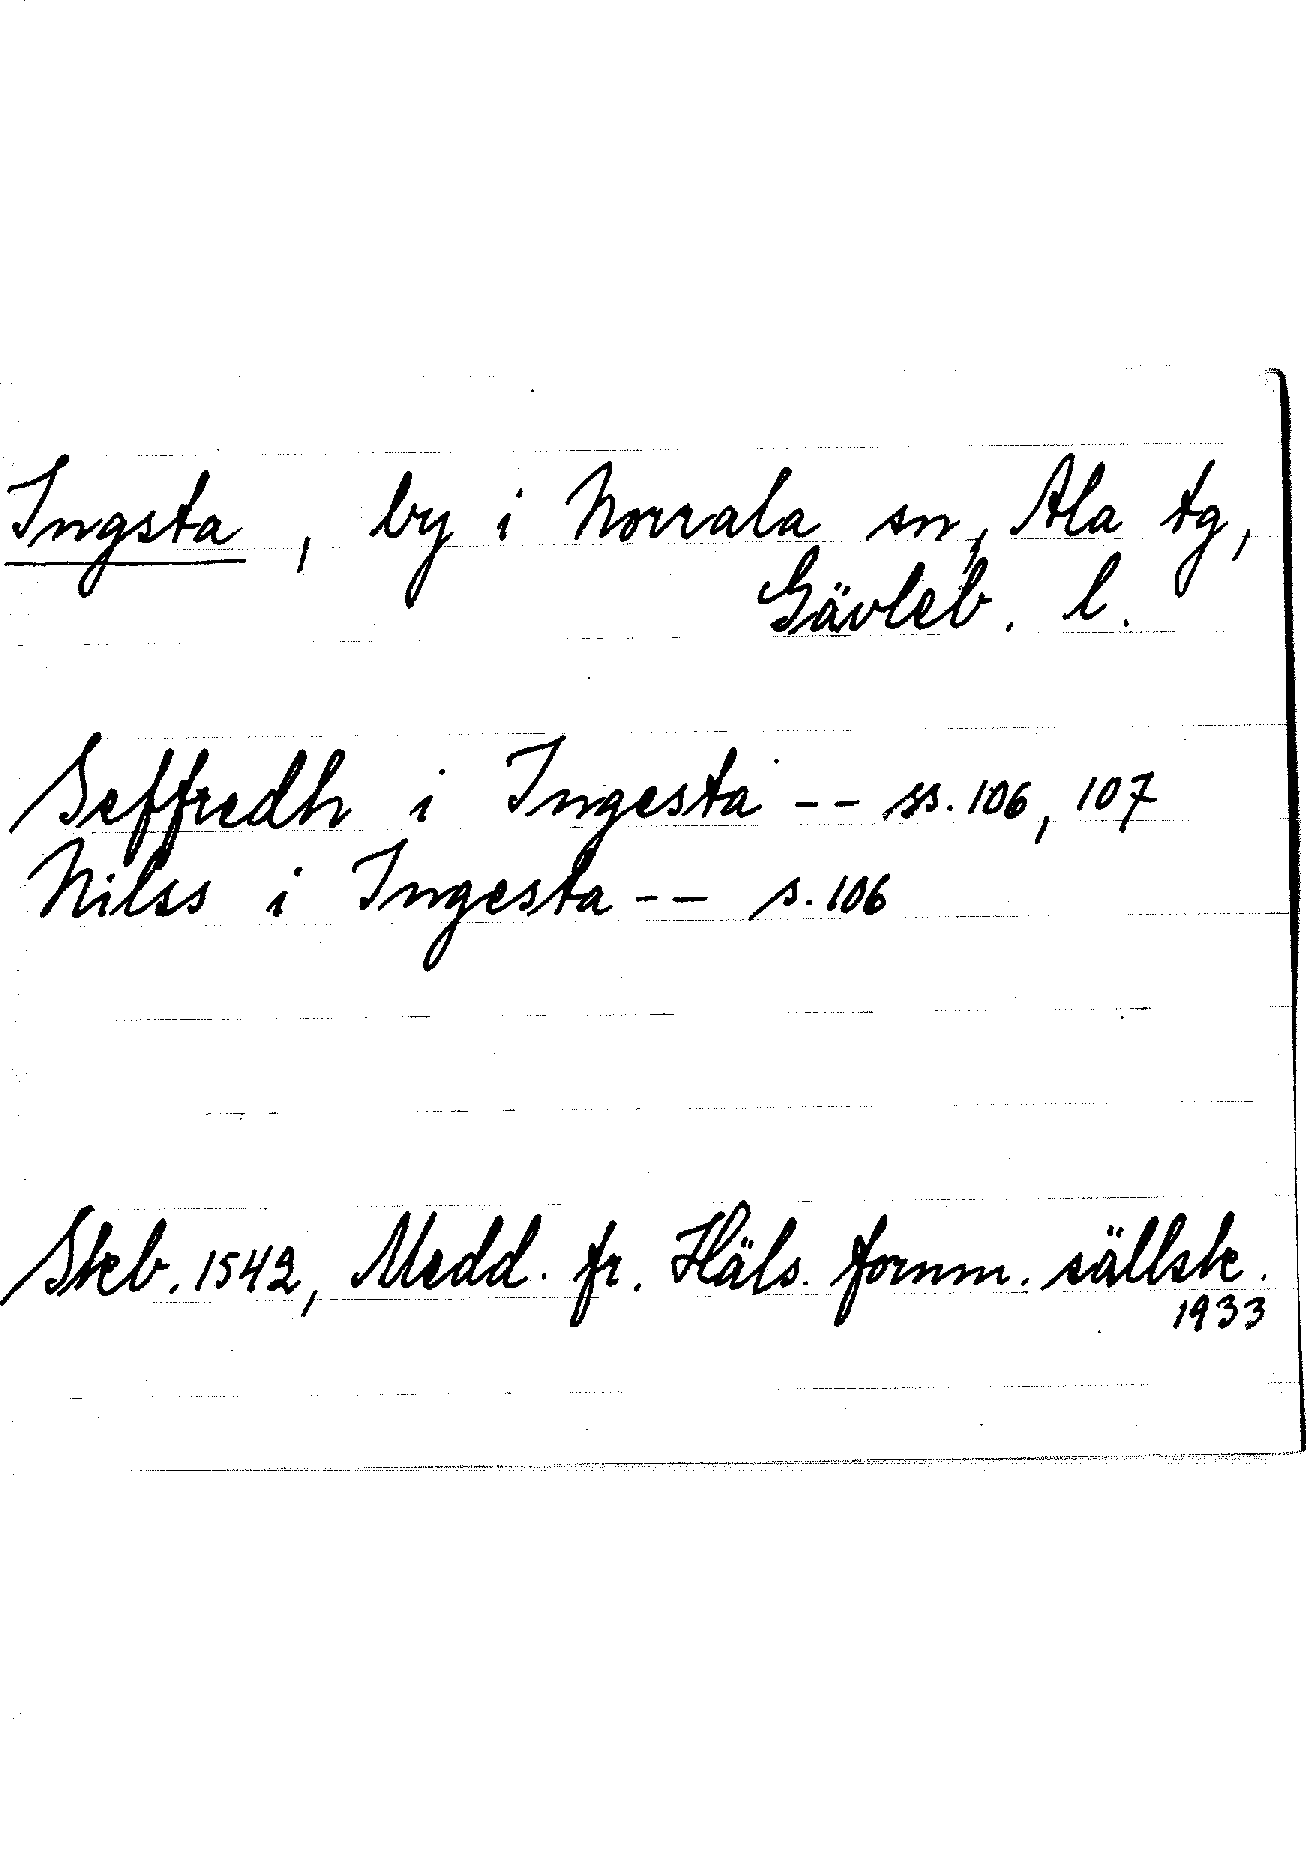 Ingsta, by i Norrala sn, Ala tg,
Gävleb. l.
Seffredh i Ingesta -- ss. 106, 107
Nilss i Ingesta -- s. 106
Skeb. 1542, Medd. fr. Häls. fornm. sällsk.
1933